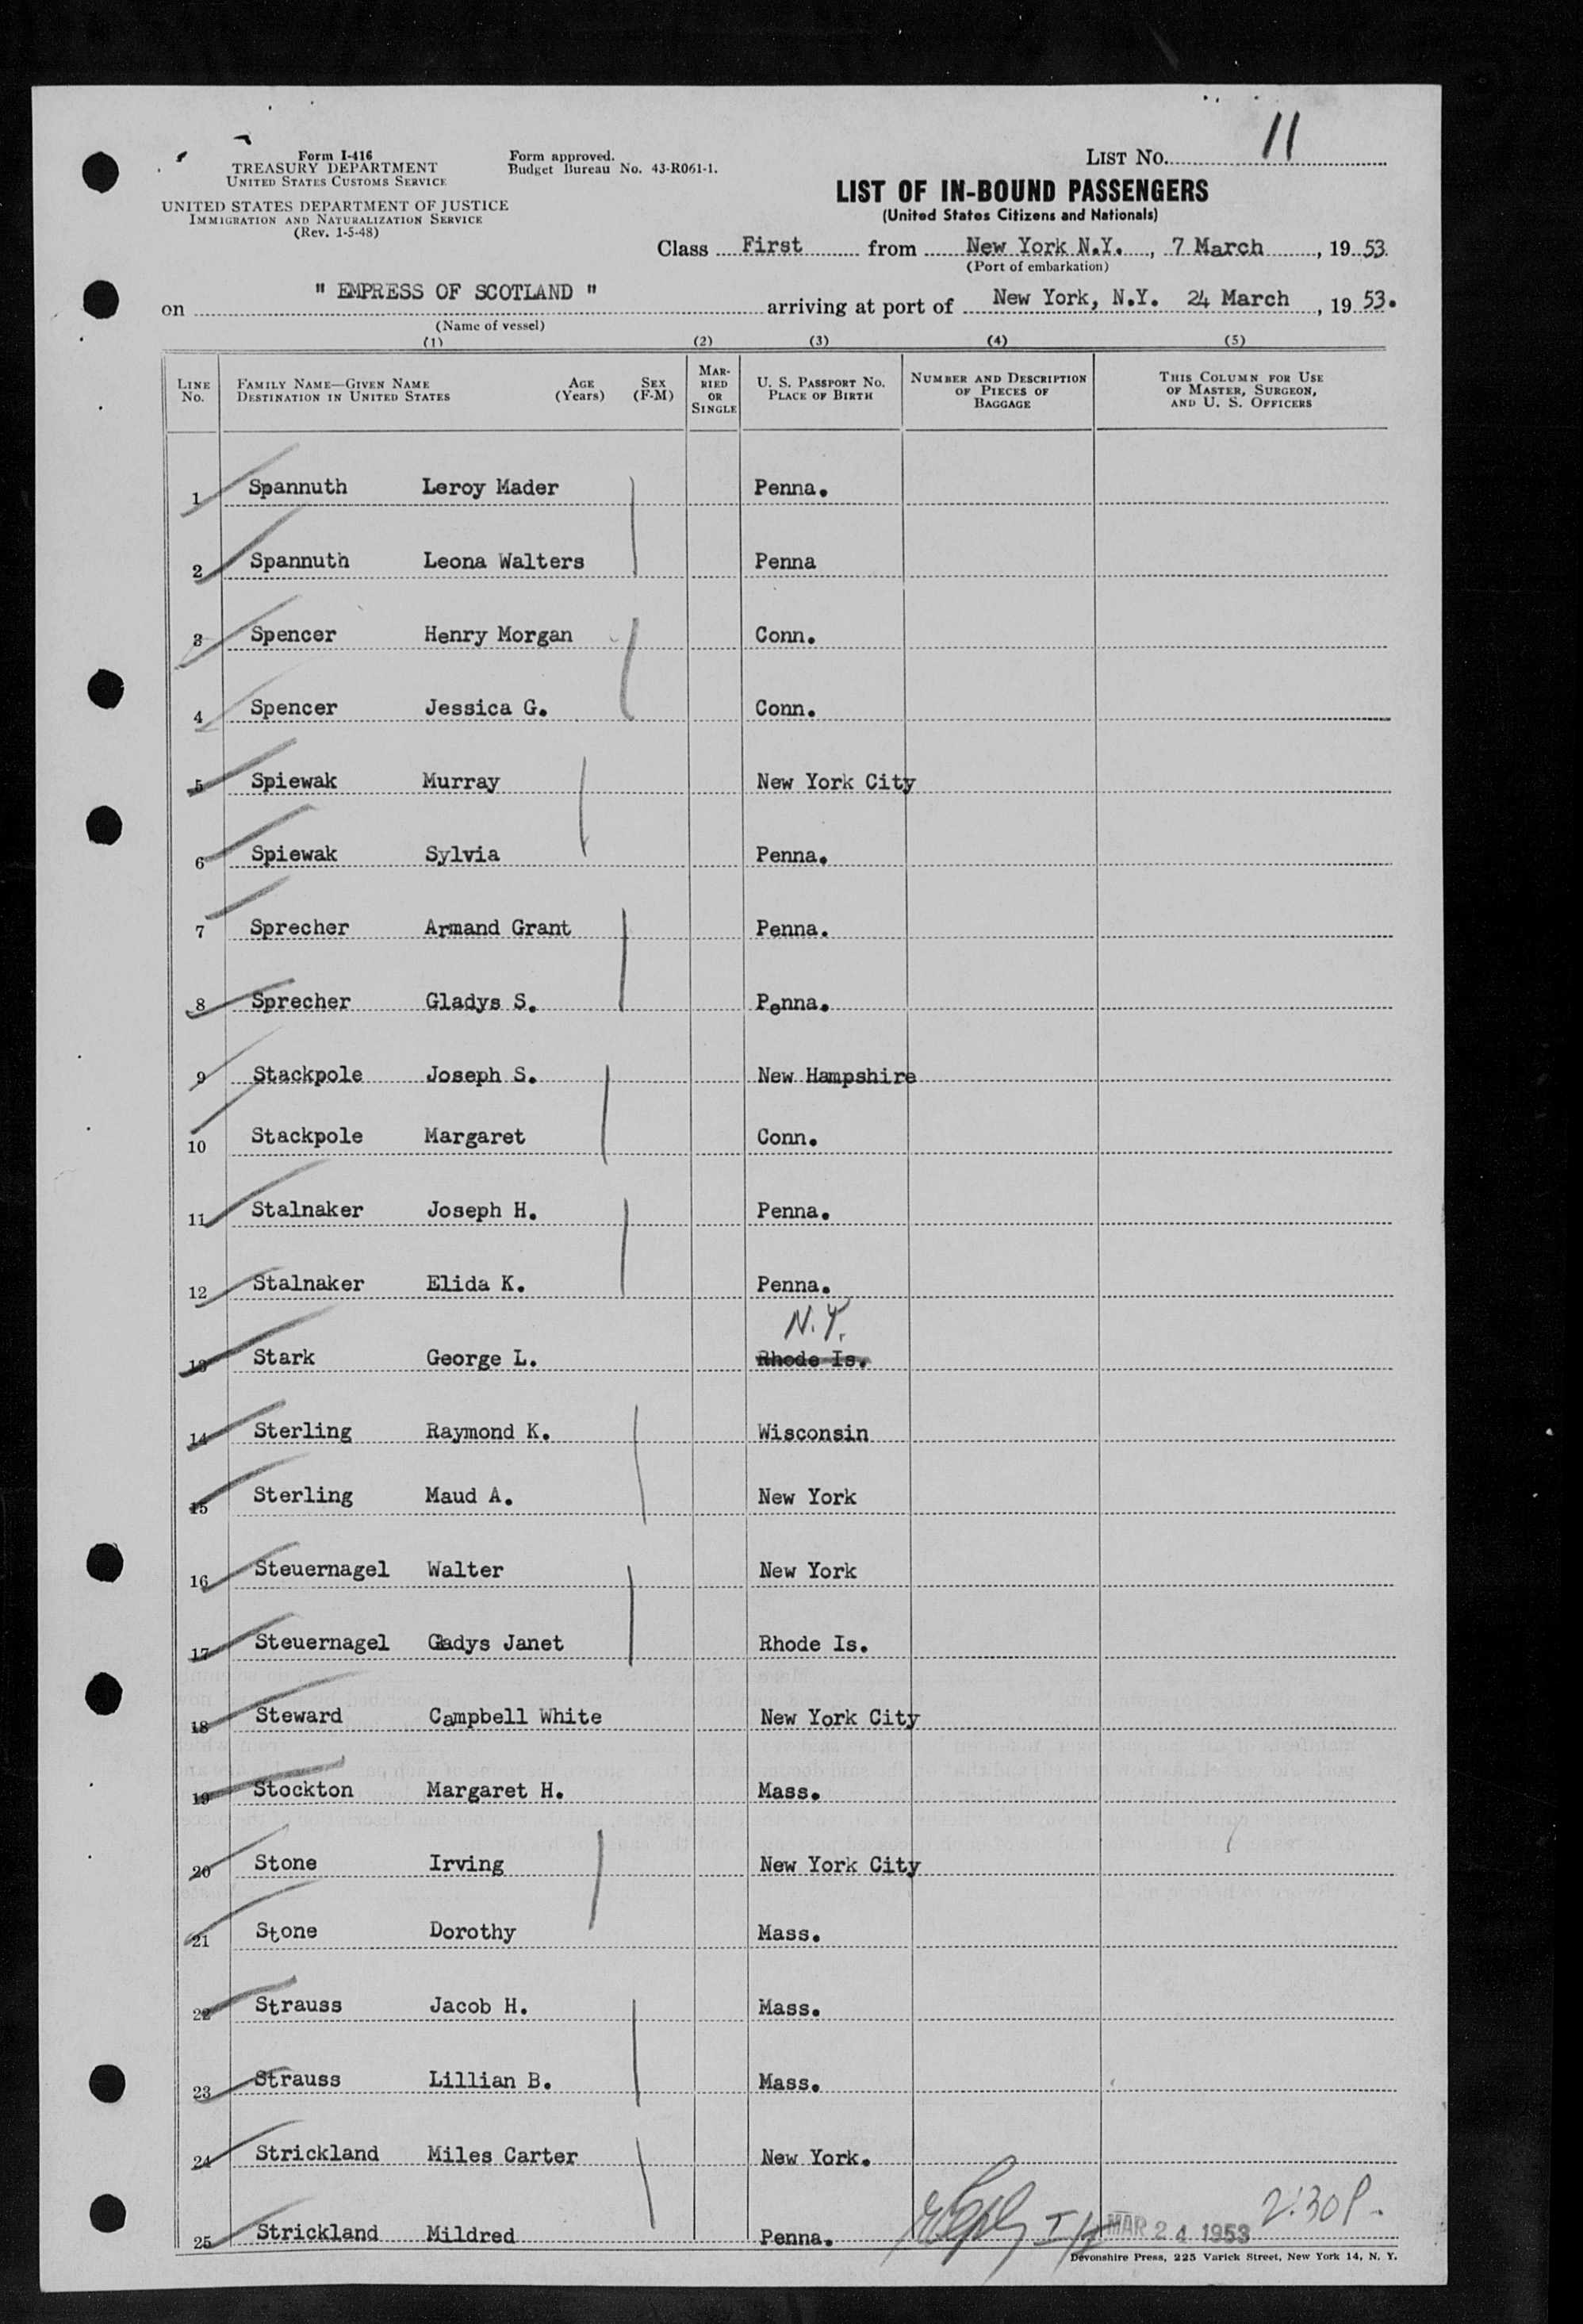 11
Form I-416
TREASURY DEPARTMENT
UNITED STATES CUSTOMS SERVICE
UNITED STATES DEPARTMENT OF JUSTICE
IMMIGRATION AND NATURALIZATION SERVICE
(Rev. 1-5-48)
Form approved.
Budget Bureau No. 43-R061-1.
LIST No.
LIST OF IN-BOUND PASSENGERS
(United States Citizens and Nationals)
Class First from New York N.Y., 7 March, 1953
(Port of embarkation)
on " EMPRESS OF SCOTLAND " arriving at port of New York, N.Y. 24 March, 1953.
(Name of vessel)
(1) (2) (3) (4) (5)
LINE No. FAMILY NAME—GIVEN NAME DESTINATION IN UNITED STATES AGE (Years) SEX (F-M) MARRIED OR SINGLE U. S. PASSPORT NO. PLACE OF BIRTH NUMBER AND DESCRIPTION OF PIECES OF BAGGAGE THIS COLUMN FOR USE OF MASTER, SURGEON, AND U. S. OFFICERS
1 Spannuth Leroy Mader Penna.
2 Spannuth Leona Walters Penna
3 Spencer Henry Morgan Conn.
4 Spencer Jessica G. Conn.
5 Spiewak Murray New York City
6 Spiewak Sylvia Penna.
7 Sprecher Armand Grant Penna.
8 Sprecher Gladys S. Penna.
9 Stackpole Joseph S. New Hampshire
10 Stackpole Margaret Conn.
11 Stalnaker Joseph H. Penna.
12 Stalnaker Elida K. Penna.
N.Y.
13 Stark George L. Rhode Is.
14 Sterling Raymond K. Wisconsin
15 Sterling Maud A. New York
16 Steuernagel Walter New York
17 Steuernagel Gladys Janet Rhode Is.
18 Steward Campbell White New York City
19 Stockton Margaret H. Mass.
20 Stone Irving New York City
21 Stone Dorothy Mass.
22 Strauss Jacob H. Mass.
23 Strauss Lillian B. Mass.
24 Strickland Miles Carter New York.
25 Strickland Mildred Penna. MAR 24 1953 2:30P.
Devonshire Press, 225 Varick Street, New York 14, N. Y.